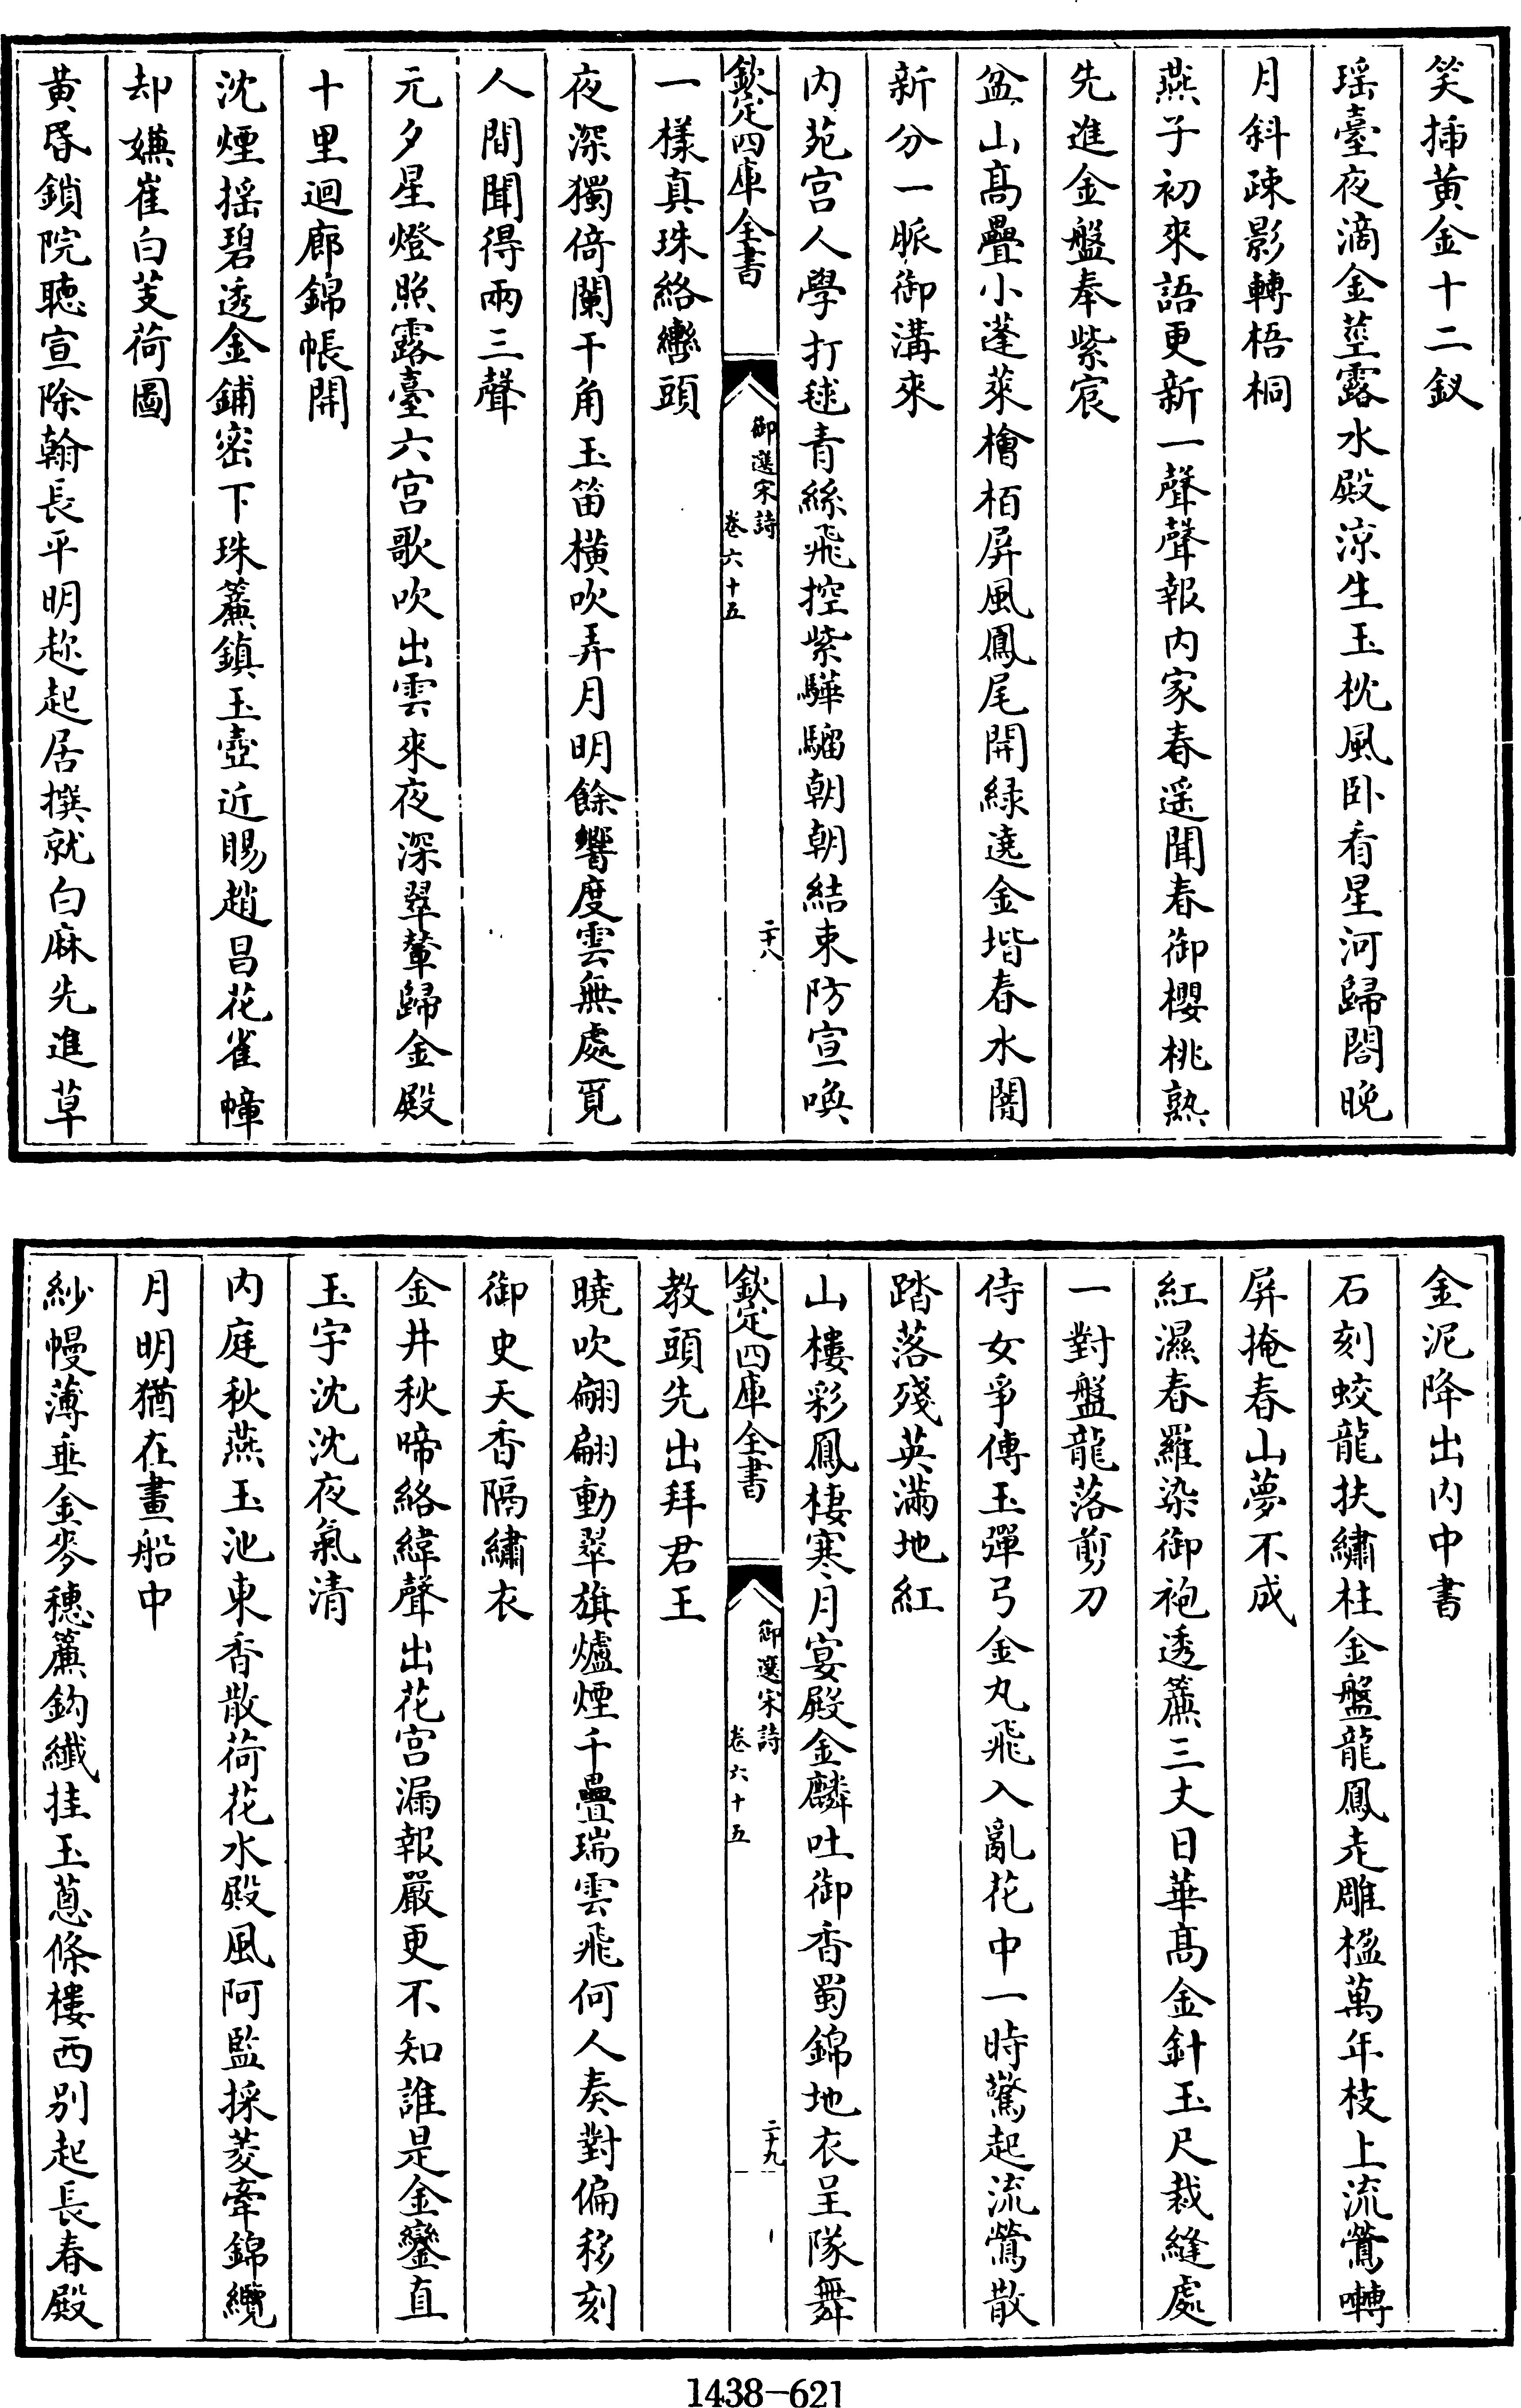 笑揷黄金十二釵
瑶臺夜滴金莖露水殿涼生玉枕風卧看星河歸閤晚
月斜疎影轉梧桐
燕子初來語更新一聲聲報内家春遥聞春御櫻桃熟
先進金盤奉紫宸
盆山髙疊小蓬萊檜栢屏風鳳尾開緑遶金堦春水闊
新分一脈御溝來
内苑宫人學打毬青絲飛控紫驊騮朝朝結束防宣喚
欽定四庫全書
御選宋詩
卷六十五
二十八
一様真珠絡轡頭
夜深獨倚闌干角玉笛横吹弄月明餘響度雲無處覓
人間聞得兩三聲
元夕星燈照露臺六宫歌吹出雲來夜深翠輦歸金殿
十里迴廊錦帳開
沈煙揺碧透金鋪密下珠簾鎮玉壺近賜趙昌花雀幛
却嫌崔白芰荷圖
黄昏鎖院聴宣除翰長平明趂起居撰就白麻先進草
金泥降出内中書
石刻蛟龍扶繡柱金盤龍鳳走雕楹萬年枝上流鶯囀
屏掩春山夢不成
紅濕春羅染御袍透簾三丈日華髙金針玉尺裁縫處
一對盤龍落剪刀
侍女爭傳玉彈弓金丸飛入亂花中一時驚起流鶯散
踏落殘英滿地紅
山樓彩鳳棲寒月宴殿金麟吐御香蜀錦地衣呈隊舞
欽定四庫全書
御選宋詩
卷六十五
二十九
教頭先出拜君王
曉吹翩翩動翠旗爐煙千疊瑞雲飛何人奏對偏移刻
御史天香隔繡衣
金井秋啼絡緯聲出花宫漏報嚴更不知誰是金鑾直
玉宇沈沈夜氣清
内庭秋燕玉池東香散荷花水殿風阿監採菱牽錦纜
月明猶在畫船中
紗幔薄垂金麥穗簾鈎纖挂玉蔥條樓西别起長春殿
1438-621